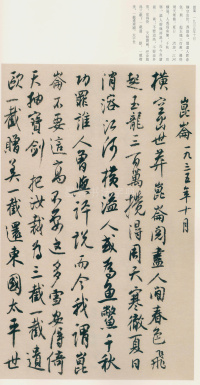 崑崙 一九三五年十月
横空出世莽崑崙阅盡人间春色飛
起玉龙三百萬攪得周天寒徹夏日
消溶江河横溢人或為鱼鳖千秋
功罪谁人曾與評说而今我谓崑
崙不要這高不要這多雪安得倚
天抽寶剑把汝裁為三截一截遗
欧一截赠美一截還東國太平世